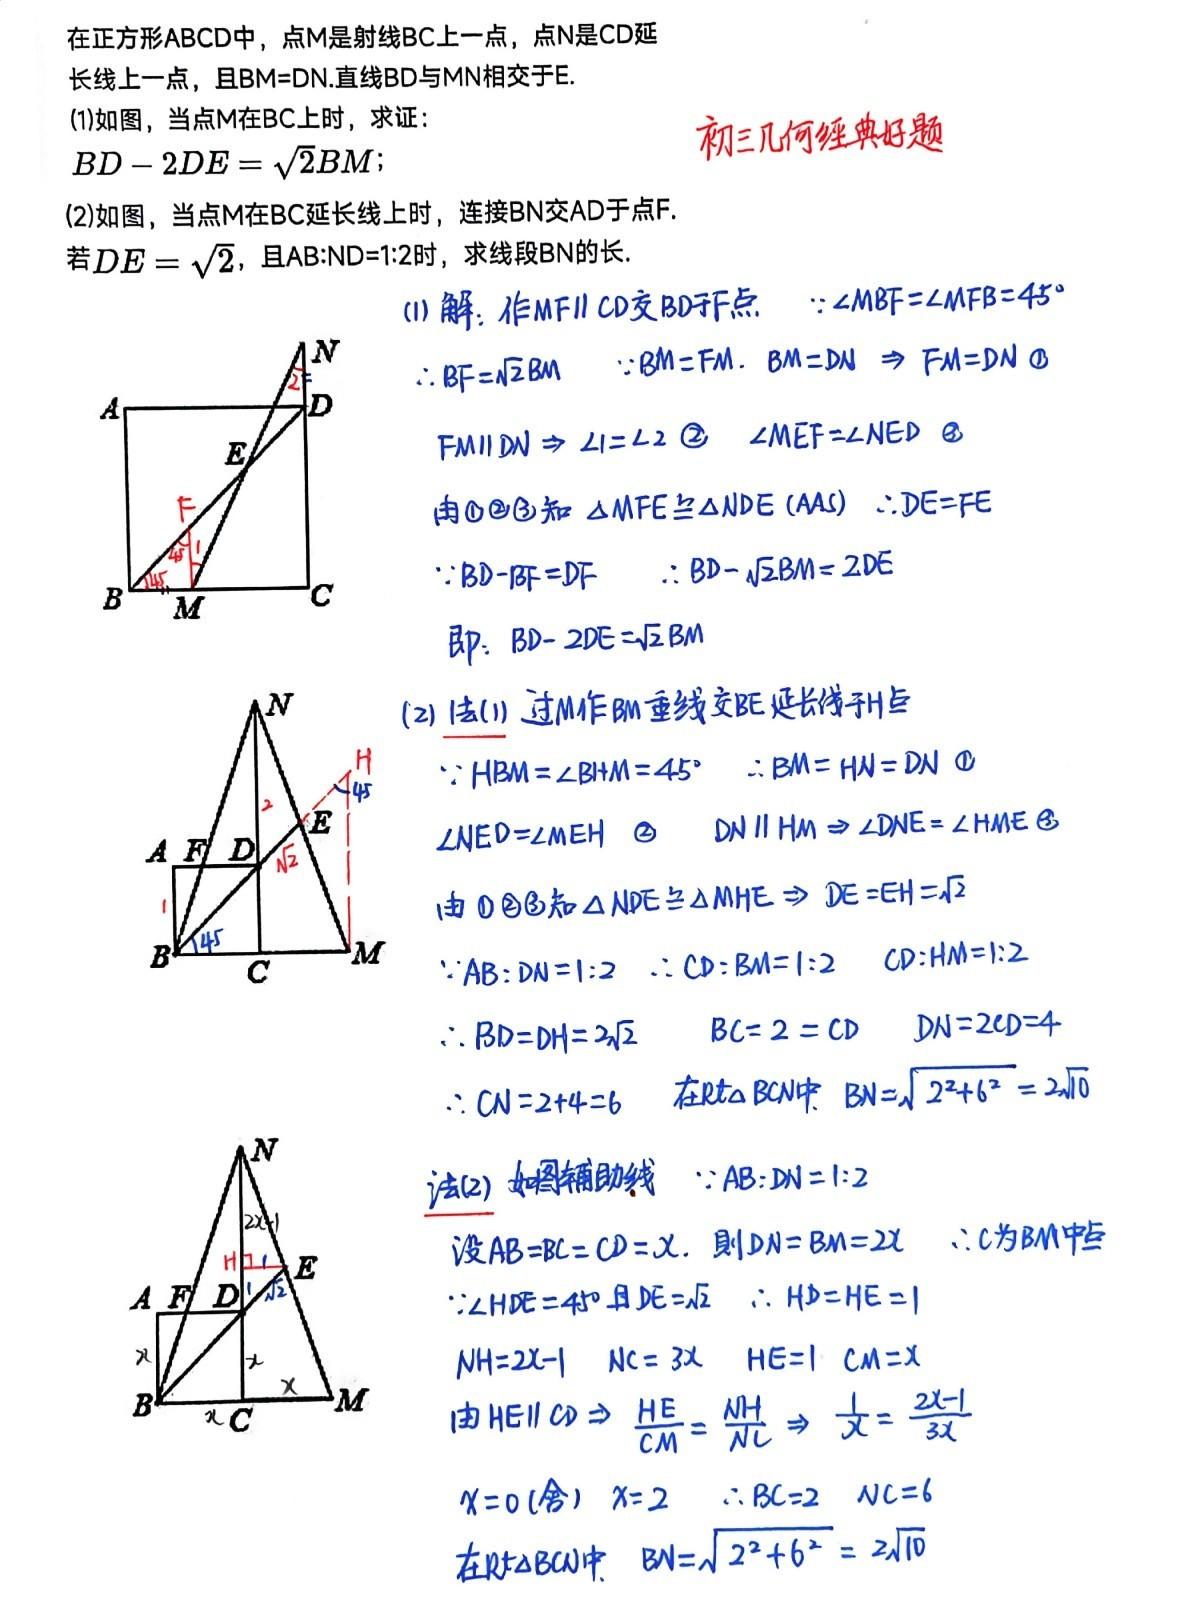 在正方形ABCD中，点M是射线BC上一点，点N是CD延
长线上一点，且BM=DN.直线BD与MN相交于E.
(1)如图，当点M在BC上时，求证：
BD-2DE=√2BM；
(2)如图，当点M在BC延长线上时，连接BN交AD于点F.
若DE=√2，且AB:ND=1:2时，求线段BN的长.
初三几何經典好题
(1) 解：作MF∥CD交BD于F点 ∵∠MBF=∠MFB=45°
∴BF=√2BM ∵BM=FM. BM=DN ⇒ FM=DN ①
FM∥DN ⇒ ∠1=∠2 ② ∠MEF=∠NED ③
由①②③知 △MFE≌△NDE (AAS) ∴DE=FE
∵BD-BF=DF ∴BD-√2BM=2DE
即：BD-2DE=√2BM
N
2
A
D
E
F
45
1
45
B
M
C
(2) 法(1) 过M作BM垂线交BE延长线于H点
∵HBM=∠BHM=45° ∴BM=HN=DN ①
∠NED=∠MEH ② DN∥HM ⇒ ∠DNE=∠HME ③
由①②③知△NDE≌△MHE ⇒ DE=EH=√2
∵AB:DN=1:2 ∴CD:BM=1:2 CD:HM=1:2
∴BD=DH=2√2 BC=2=CD DN=2CD=4
∴CN=2+4=6 在Rt△BCN中 BN=√(2²+6²)=2√10
N
H
45
2
E
A F D
√2
1
45
B
C
M
法(2) 如图辅助线 ∵AB:DN=1:2
设AB=BC=CD=x. 則DN=BM=2x ∴C为BM中点
∵∠HDE=45°且DE=√2 ∴HD=HE=1
NH=2x-1 NC=3x HE=1 CM=x
由HE∥CD ⇒ HE/CM=NH/NC ⇒ 1/x=(2x-1)/3x
x=0(舍) x=2 ∴BC=2 NC=6
在Rt△BCN中 BN=√(2²+6²)=2√10
N
2x-1
H 1 E
A F D 1 √2
x
x
x
B
x C
M